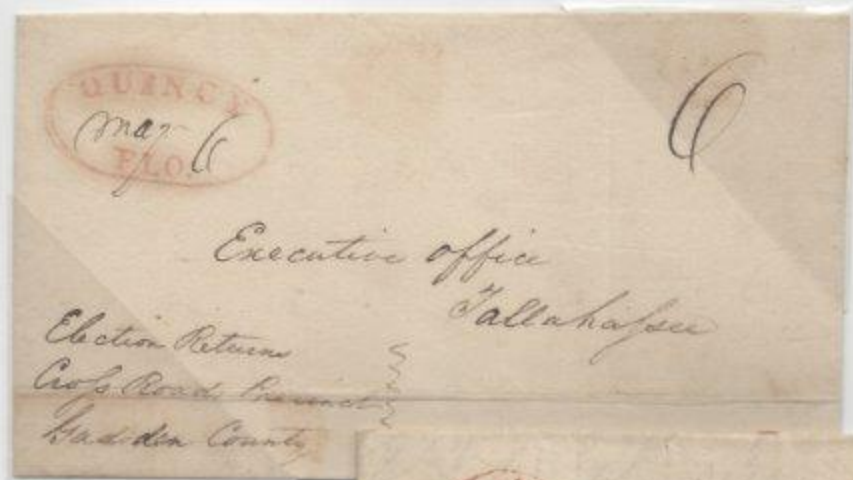 QUINCY
May 6
FLO.
6
Executive office
Tallahassee
Election Returns
Cross Roads Precinct
Gadsden County